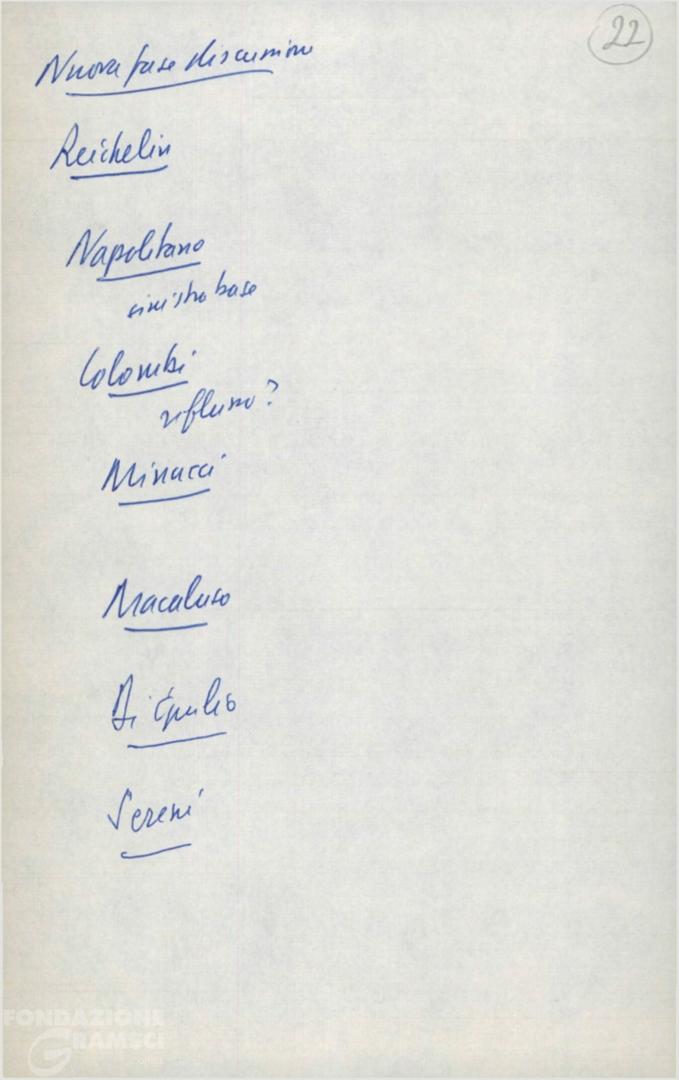 22
Nuova fase discussione
Reichelin
Napolitano
sinistra base
Colombi
riflusso?
Minucci
Macaluso
Di Giulio
Sereni
FONDAZIONE
GRAMSCI